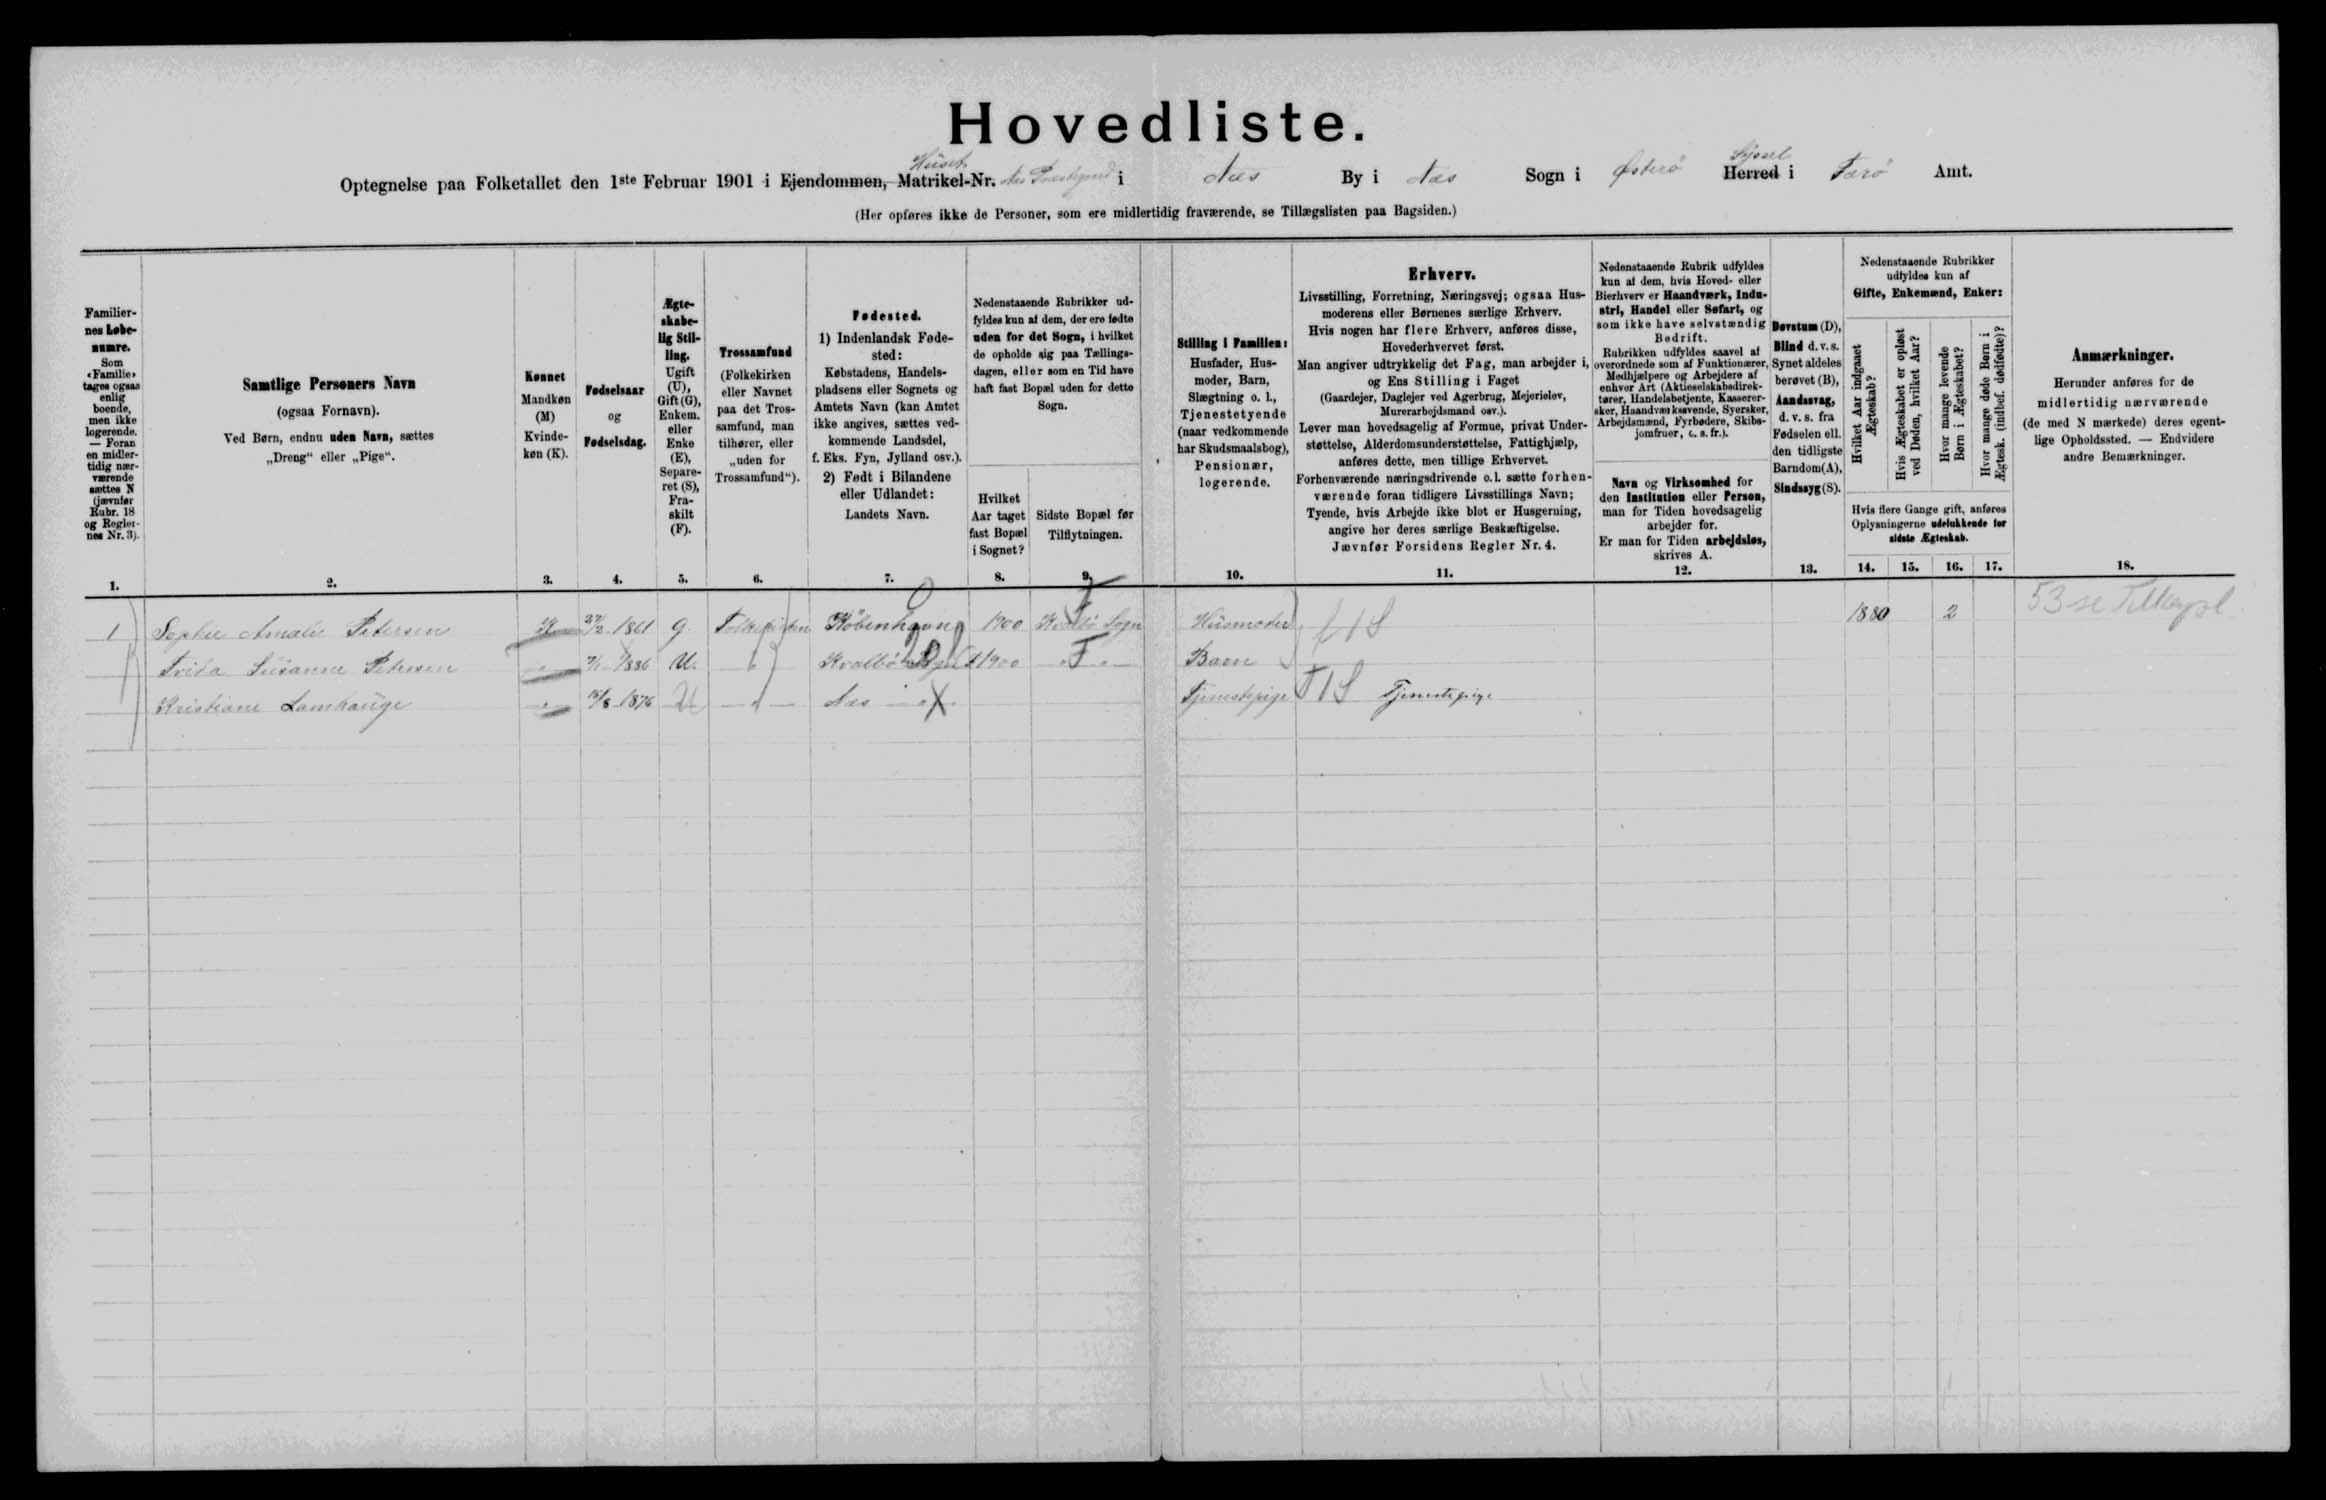 Hovedliste.
Huset
Syssel
Optegnelse paa Folketallet den 1ste Februar 1901 i Ejendommen, Matrikel-Nr. Næs Præstegaard i Næs By i Næs Sogn i Østerø Herred i Færø Amt.
(Her opføres ikke de Personer, som ere midlertidig fraværende, se Tillægslisten paa Bagsiden.)
Familier-
nes Løbe-
numre.
Som
«Familie»
tages ogsaa
enlig
boende,
men ikke
logerende.
— Foran
en midler-
tidig nær-
værende
sættes N
(jævnfør
Rubr. 18
og Regler-
nes Nr. 3).
1.
Samtlige Personers Navn
(ogsaa Fornavn).
Ved Børn, endnu uden Navn, sættes
„Dreng“ eller „Pige“.
2.
Kønnet
Mandkøn
(M)
Kvinde-
køn (K).
3.
Fødselsaar
og
Fødselsdag.
4.
Ægte-
skabe-
lig Stil-
ling.
Ugift
(U),
Gift (G),
Enkem.
eller
Enke
(E),
Separe-
ret (S),
Fra-
skilt
(F).
5.
Trossamfund
(Folkekirken
eller Navnet
paa det Tros-
samfund, man
tilhører, eller
„uden for
Trossamfund“).
6.
Fødested.
1) Indenlandsk Føde-
sted:
Købstadens, Handels-
pladsens eller Sognets og
Amtets Navn (kan Amtet
ikke angives, sættes ved-
kommende Landsdel,
f. Eks. Fyn, Jylland osv.).
2) Født i Bilandene
eller Udlandet:
Landets Navn.
7.
Nedenstaaende Rubrikker ud-
fyldes kun af dem, der ere fødte
uden for det Sogn, i hvilket
de opholde sig paa Tællings-
dagen, eller som en Tid have
haft fast Bopæl uden for dette
Sogn.
Hvilket
Aar taget
fast Bopæl
i Sognet?
8.
Sidste Bopæl før
Tilflytningen.
9.
Stilling i Familien:
Husfader, Hus-
moder, Barn,
Slægtning o. l.,
Tjenestetyende
(naar vedkommende
har Skudsmaalsbog),
Pensionær,
logerende.
10.
Erhverv.
Livsstilling, Forretning, Næringsvej; ogsaa Hus-
moderens eller Børnenes særlige Erhverv.
Hvis nogen har flere Erhverv, anføres disse,
Hovederhvervet først.
Man angiver udtrykkelig det Fag, man arbejder i,
og Ens Stilling i Faget
(Gaardejer, Daglejer ved Agerbrug, Mejerielev,
Murerarbejdsmand osv.).
Lever man hovedsagelig af Formue, privat Under-
støttelse, Alderdomsunderstøttelse, Fattighjælp,
anføres dette, men tillige Erhvervet.
Forhenværende næringsdrivende o. l. sætte forhen-
værende foran tidligere Livsstillings Navn;
Tyende, hvis Arbejde ikke blot er Husgerning,
angive her deres særlige Beskæftigelse.
Jævnfør Forsidens Regler Nr. 4.
11.
Nedenstaaende Rubrik udfyldes
kun af dem, hvis Hoved- eller
Bierhverv er Haandværk, Indu-
stri, Handel eller Søfart, og
som ikke have selvstændig
Bedrift.
Rubrikken udfyldes saavel af
overordnede som af Funktionærer,
Medhjælpere og Arbejdere af
enhver Art (Aktieselskabsdirek-
tører, Handelsbetjente, Kasserer-
sker, Haandværkssvende, Syersker,
Arbejdsmænd, Fyrbødere, Skibs-
jomfruer, o. s. fr.).
Navn og Virksomhed for
den Institution eller Person,
man for Tiden hovedsagelig
arbejder for.
Er man for Tiden arbejdsløs,
skrives A.
12.
Døvstum (D),
Blind d. v. s.
Synet aldeles
berøvet (B),
Aandssvag,
d. v. s. fra
Fødselen ell.
den tidligste
Barndom (A),
Sindssyg (S).
13.
Nedenstaaende Rubrikker
udfyldes kun af
Gifte, Enkemænd, Enker:
Hvilket Aar indgaaet
Ægteskab?
Hvis Ægteskabet er opløst
ved Døden, hvilket Aar?
Hvor mange levende
Børn i Ægteskabet?
Hvor mange døde Børn i
Ægtesk. (indbef. dødfødte)?
Hvis flere Gange gift, anføres
Oplysningerne udelukkende for
sidste Ægteskab.
14. 15. 16. 17.
Anmærkninger.
Herunder anføres for de
midlertidig nærværende
(de med N mærkede) deres egent-
lige Opholdssted. — Endvidere
andre Bemærkninger.
18.
1 Sophie Amalie Petersen K 1861 G. Folkekirken København 1900 Kvalbø Sogn Husmoder 1880 2 53 se Tillægsl
Frida Susanne Petersen 1886 U. Kvalbø Sogn 1900 Barn
Kristiane Lamhauge 15/8 1876 U Næs Tjenestepige Tjenestepige